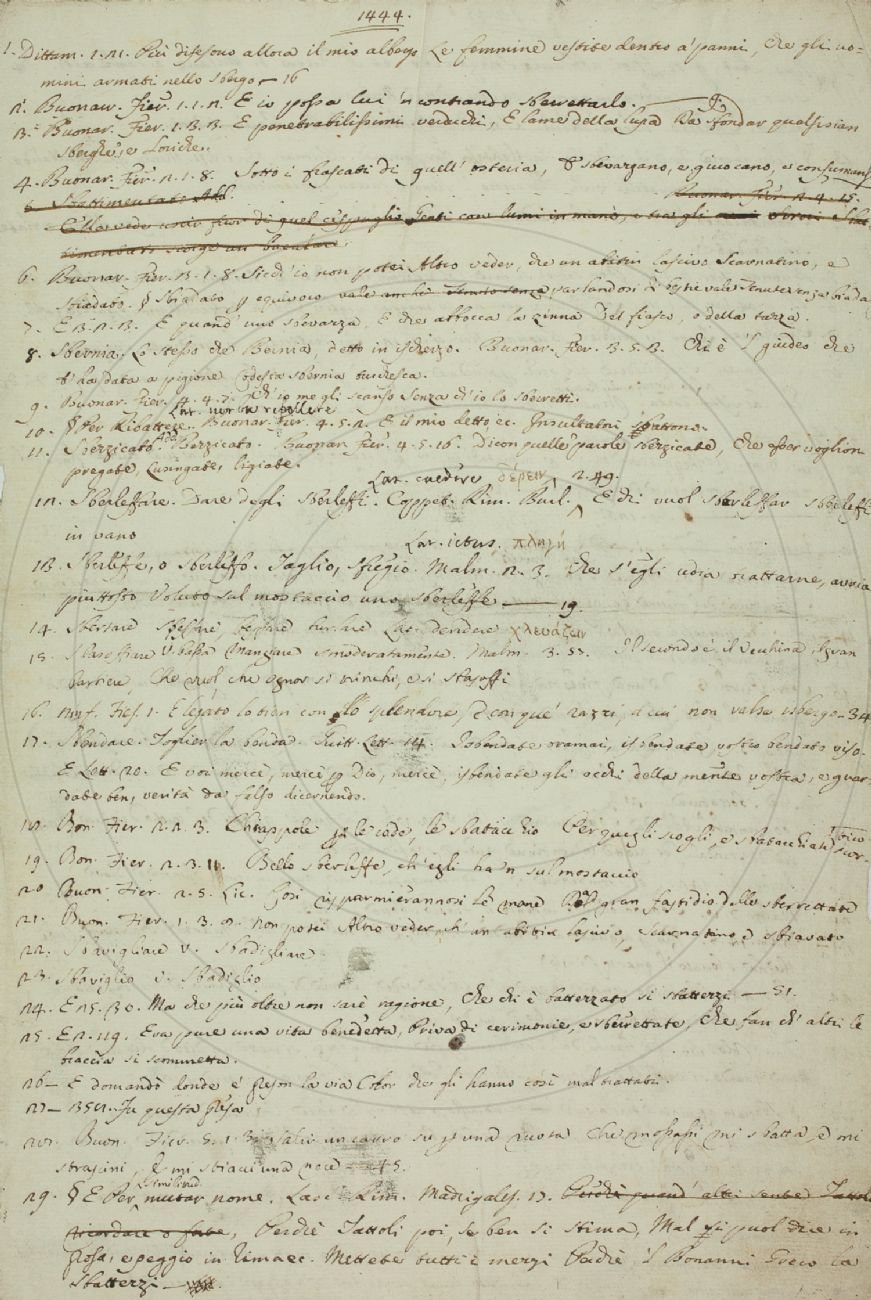 1444.
1. Dittam. 1. 21. Più difesono allora il mio albergo Le femmine vestite dentro a' panni, Che gli uo=
mini armati nello sbergo — 16
2. Buonar. Fier. 1. 1. 2. E io possa lui 'ncontrando sberrettarlo.
3. Buonar. Fier. 1. 3. 3. E penetrabilissimi verduchi, E lame della lupa Da sfondar qualsisian
sberghe, e loriche.
4. Buonar. Fier. 2. 1. 8. Sotto i frascati di quell' osteria, sbevazzano, e giuocano, e consuman
Buonar. Fier. 2. 4. 15.
6. Buonar. Fier. 3. 1. 8. Sicch' io non potei Altro veder, che un abitin lascivo Scarnatino, e
sbiadato. § Sbiadato p equivoco vale anche Tenuto senza, parlandosi di bestie vale Tenute senza biada
7. E 3. 2. 3. E quand' uno sbevazza, E che abbocca la zinna Del fiasco, o della tazza.
8. Sbernia. Lo stesso che Bernia, detto in ischerzo. Buonar. Fier. 3. 5. 3. Chi è 'l giudeo che
t' ha data a pigione Codesta sbernia turchesca.
9. Buonar. Fier. 4. 4. 7. Ch' io me gli scanso senza ch' io lo sberretti.
10. § Per Ribattere. Buonar. Fier. 4. 5. 2. E il mio detto ec. Insultatori sbattono.
11. Sberzicato Add. Berzicato. Buonar. Fier. 4. 5. 16. Dicon quelle parole sberzicate, Che esser voglion
pregate, lusingate, ligiate.
Lat. cædere, δέρειν, 2. 49.
12. Sberleffare. Dare degli sberleffi. Coppet. Rim. Burl. E chi vuol sberleffar sberleffi
in vano
Lat. ictus, πληγή
13. Sberleffe, o sberleffo. Taglio, sfregio. Malm. 2. 3. Che s'egli udia trattarne, avria
piuttosto Voluto sul mostaccio uno sberleffe — 19.
14. Lat. deridere χλευάζειν
15. V. bassa Mangiare smoderatamente. Malm. 3. 53. Il secondo è il Vecchina, il gran
barbiere, Che vuol che ognor si trinchi, e si sbasoffi
16. E legato lo tien con lo splendore, E con que' razzi, a cui non valse usbergo — 34
17. Sbendare. Toglier la benda. Guitt. Lett. 14. Disbendate oramai, isbendate vostro bendato viso.
E Lett. 20. E voi mercè, mercè p Dio, mercè, isbendate gli occhi della mente vostra, e guar=
date ben, verità da falso dicernendo.
18. Bon. Fier. 2. 2. 3. Chiappole p le code, le sbatacchio Per quegli scogli, e sbatacchiate
19. Bon. Fier. 2. 3. 11. Bello sberleffe, ch' egli ha 'n sul mostaccio
20. Buon. Fier. 2. 5. Lic. Così risparmierannosi le mane Dal gran fastidio delle sberrettate
21. Buon. Fier. 1. 3. 9. Non potei Altro veder, ch' un abitin lascivo, scarnatino, e sbiavato
22. Sbavigliare V. Sbadigliare.
23. Sbaviglio V. Sbadiglio
24. E 25. 30. Ma che più oltre non sarà ragione, Che chi è batterzato si sbatterzi — 31.
25. E 2. 119. Era pure una vita benedetta, Priva di cerimonie, e sberrettate, Che fan ch' altri le
braccia si scommetta.
26 — E domandò donde e' preson la via Color che gli hanno così mal trattati.
27 — In questa presa
28. Buon. Fier. 5. 1. 3. salir un carro su p una ruota Che mossasi mi sbatta, e mi
strascini, E mi sbiaci una noce — 45.
29. § E Per similitud. mutar nome. Lasc. Rim. Madrigaless. 17. Perchè quand' altri sente Tattoli
ricordare o forse, Perchè Tattoli poi, se ben si stima, Mal si puol dire in
prosa, e peggio in rima ec. Mettete tutti i mezzi Perchè 'l Bonanni Greco la
sbatterzi —